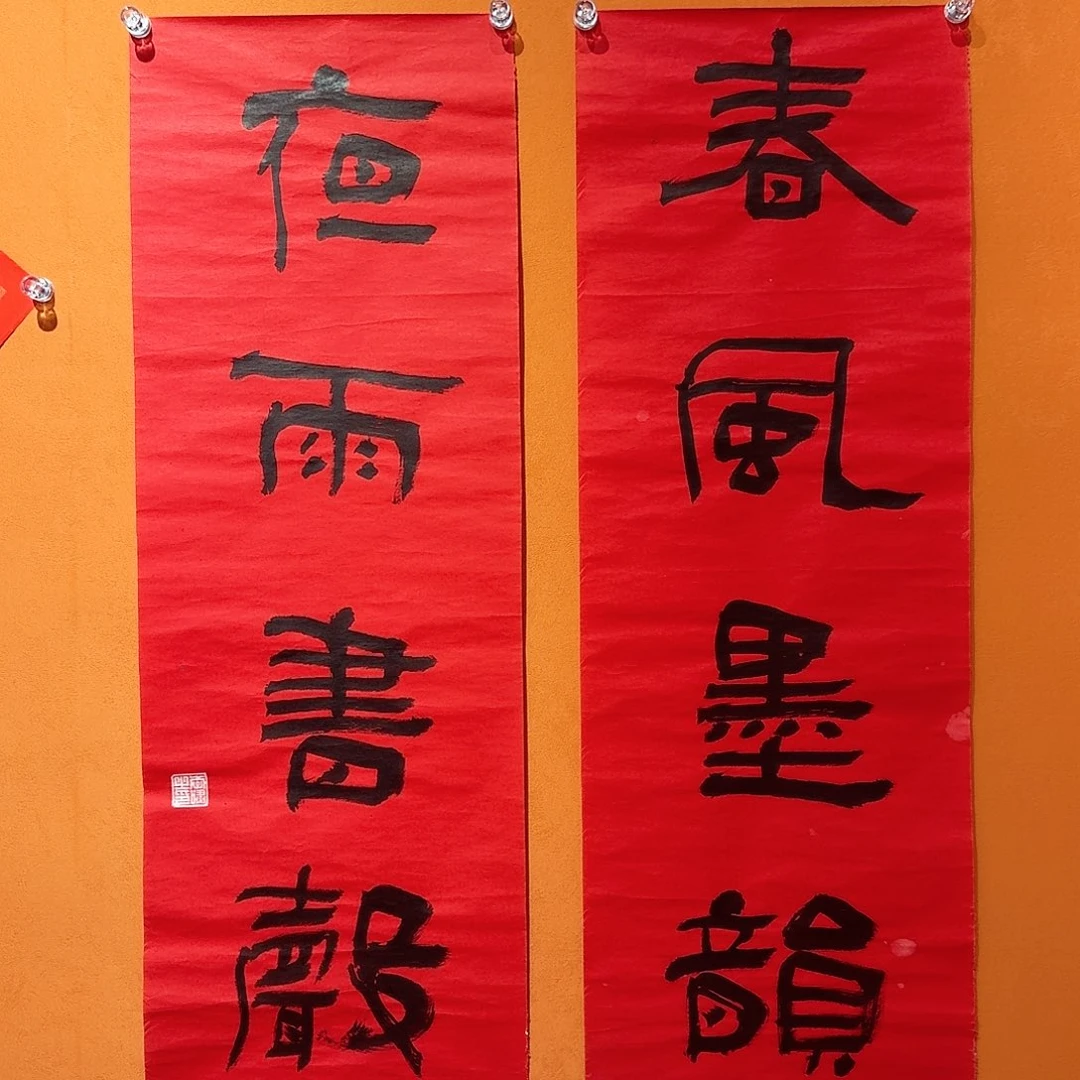 春風墨韻
夜雨書聲